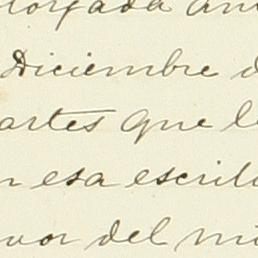 otorgada an
Diciembre d
artes que l
n esa escrit
vor del mi